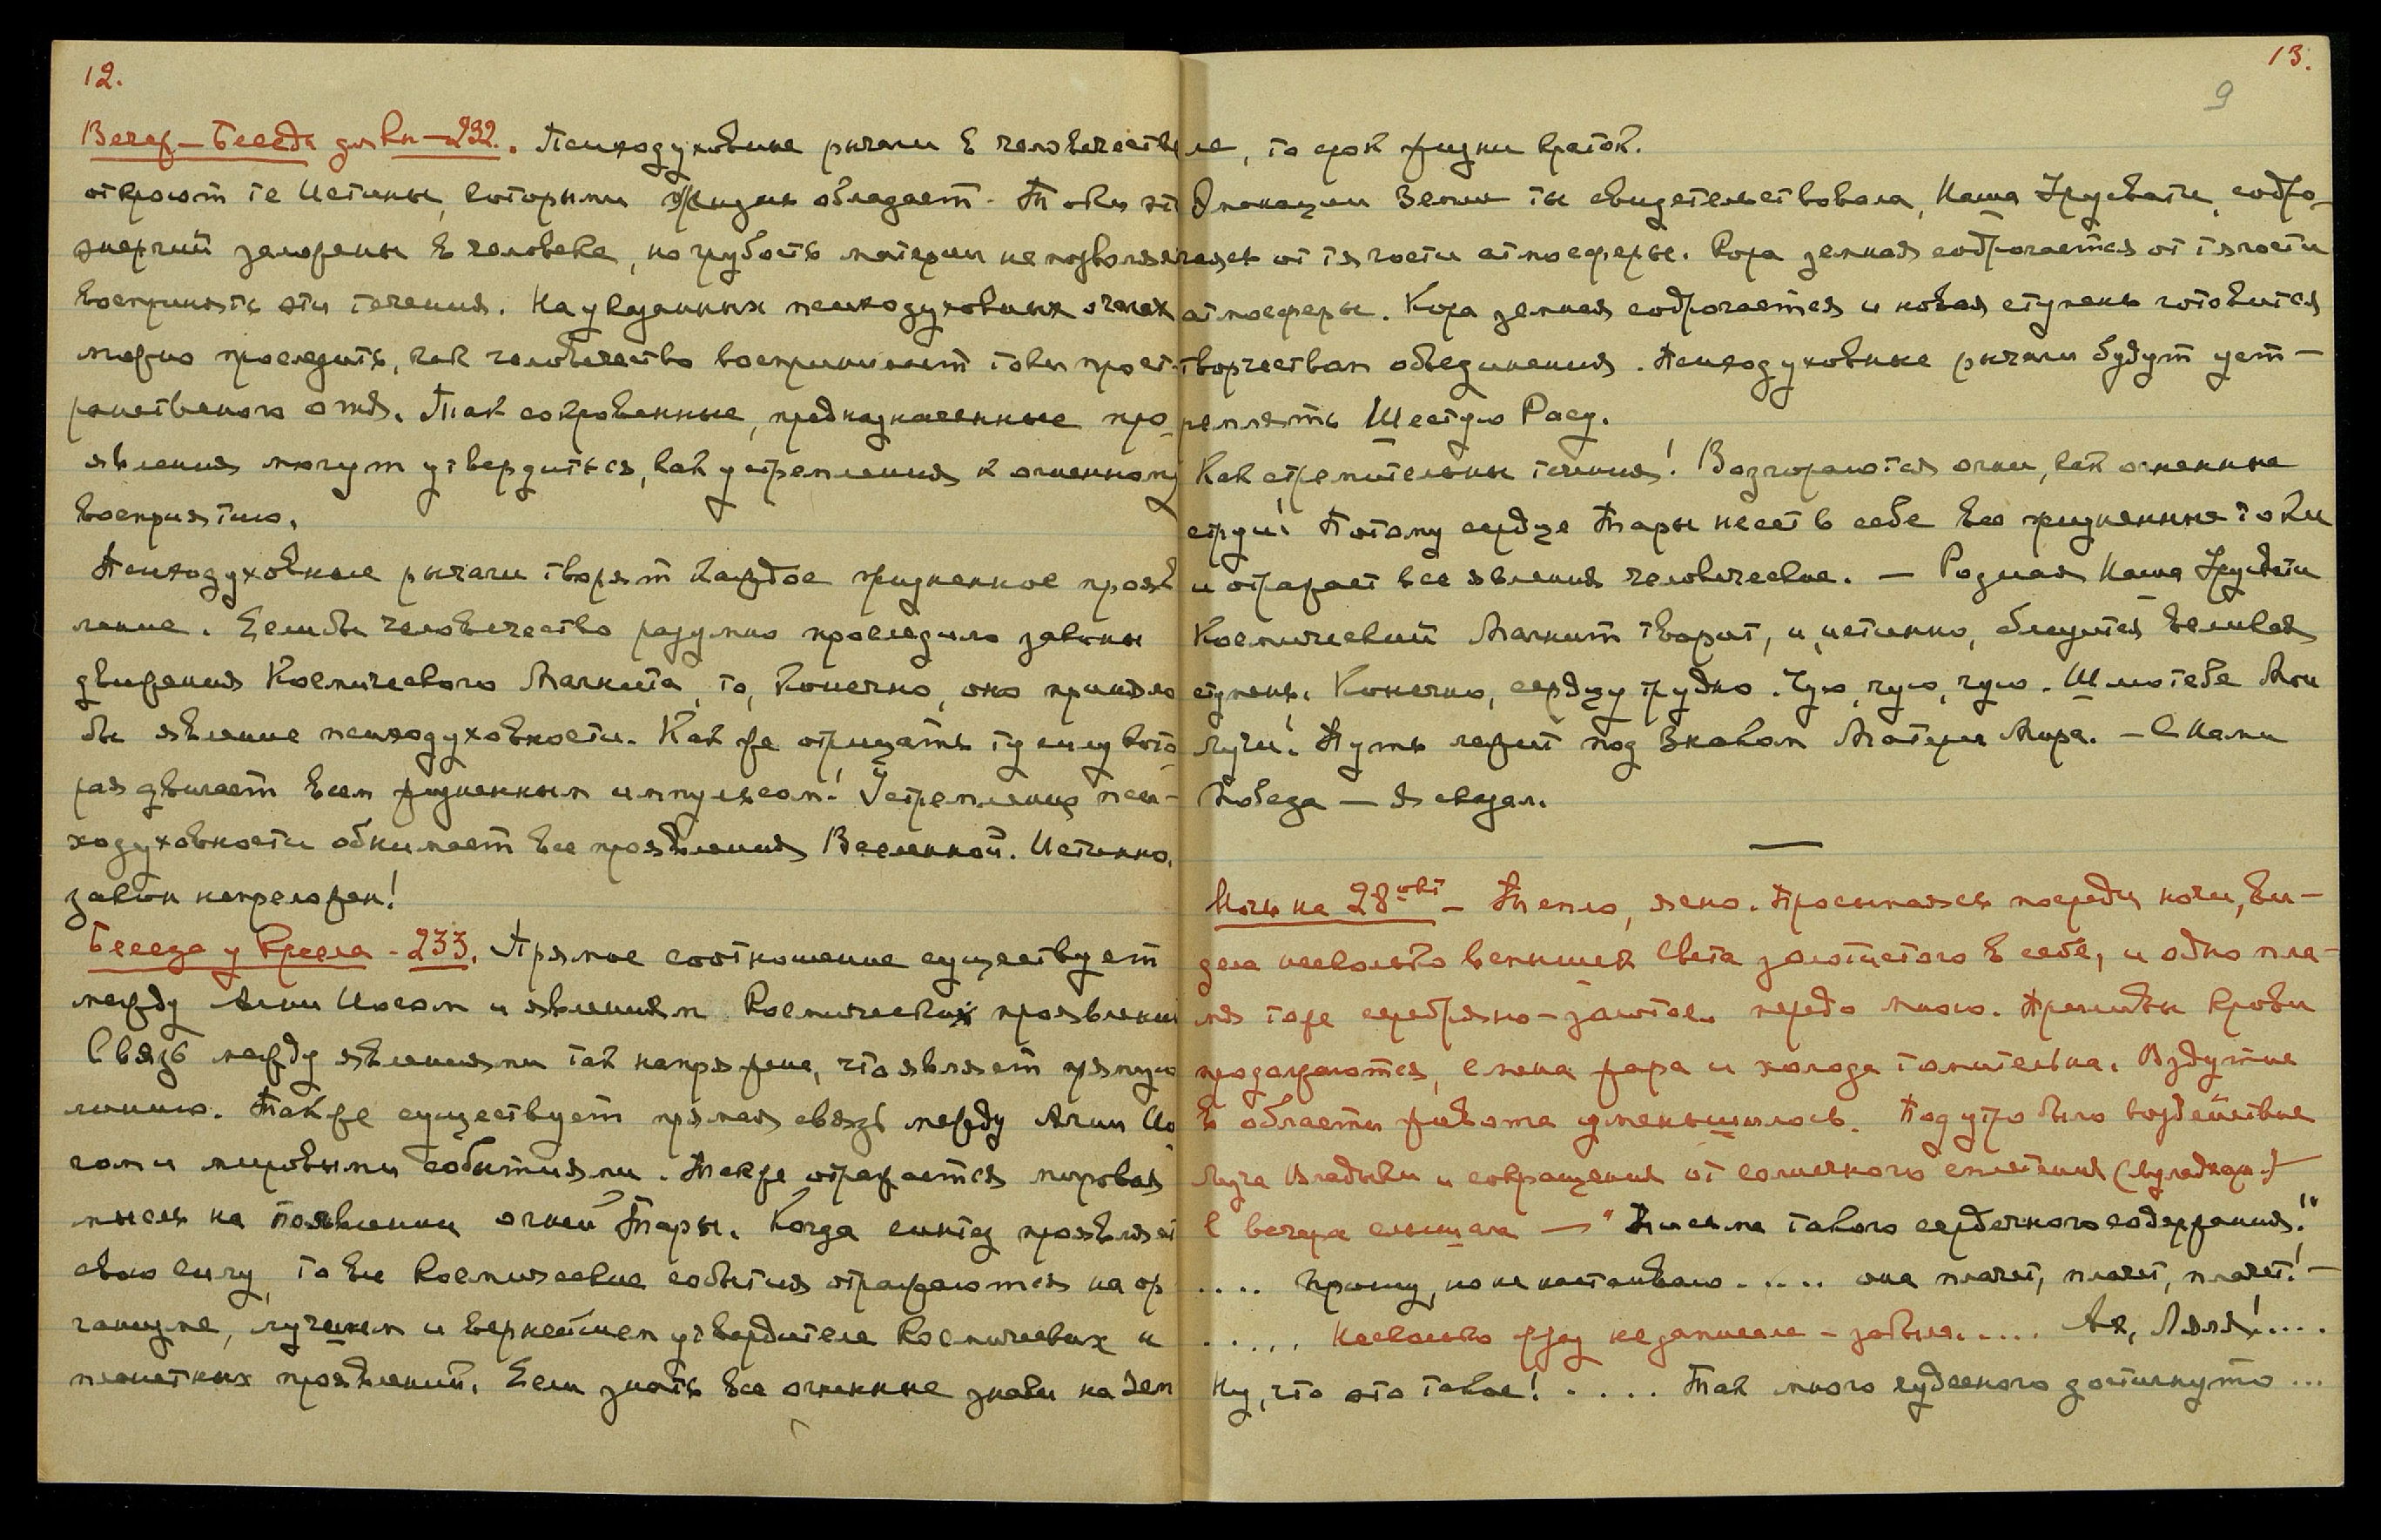 12.
Вечер – Беседа для Кн – 232. Психодуховные рычаги в человечеств
откроют те Истины, которыми Жизнь обладает. Токи эт
энергий заложены в человеке, но грубость материи не позволяе
воспринять эти течения. На указанных психодуховных огнях
можно проследить, как человечество воспринимает токи прост-
ранственного огня. Так сокровенные, предназначенные про-
явления могут утвердиться, как устремления к огненному
восприятию.
Психодуховные рычаги творят каждое жизненное прояв
ление. Если бы человечество разумно проследило законы
движения Космического Магнита, то, конечно, оно приняло
бы явление психодуховности. Как же отрицать ту силу кото-
рая двигает всем жизненным импульсом! Устремление пси-
ходуховности обнимает все проявления Вселенной. Истинно,
закон непреложен!
Беседа у Кресла – 233. Прямое соотношение существует
между Агни Иогом и явлением Космических проявлени
Связь между явлениями так напряжена, что являет прямую
линию. Также существует прямая связь между Агни Ио
гом и мировыми событиями. Также отражается мировая
мысль на появлении огней Тары. Когда синтез проявляет
свою силу, то все Космические события отражаются на ор
ганизме, лучшем и вернейшем утвердителе Космических и
планетных проявлений. Если знать все огненные знаки на Зем
13.
9
ле, то срок жизни краток.
Эманации Земли ты свидетельствовала, Наша Урусвати, содро-
гаясь от тягости атмосферы. Кора земная содрогается от тягости
атмосферы. Кора земная содрогается и новая ступень готовится
творчеством объединения. Психодуховные рычаги будут уст-
ремлять Шестую Расу.
Как стремительны течения! Возгораются огни, как огненные
струи! Потому сердце Тары несет в себе все жизненные токи
и отражает все явления человеческие. – Родная Наша Урусвати
Космический Магнит творит, и, истинно, близится великая
ступень. Конечно, сердцу трудно. Чую, чую, чую. Шлю тебе Мои
Лучи! Путь лежит под Знаком Матери Мира. – С Нами
Победа – Я сказал.
Ночь на 28ое – Тепло, ясно. Просыпаясь посреди ночи, ви-
дела несколько вспышек Света золотистого в себе, и одно пла-
мя тоже серебряно-золотое передо мною. Приливы крови
продолжаются, смена жара и холода томительна. Вздутие
в области живота уменьшилось. Под утро было воздействие
Луча Владыки и сокращения от солнечного сплетения
С вечера слышала – "Письма такого сердечного содержания!"
.... Прошу, но не настаиваю..... она плачет, плачет, плачет! –
..... Несколько фраз не записала – забыла..... Ая, Ляля!....
Ну, что это такое! ..... Так много чудесного достигнуто ...